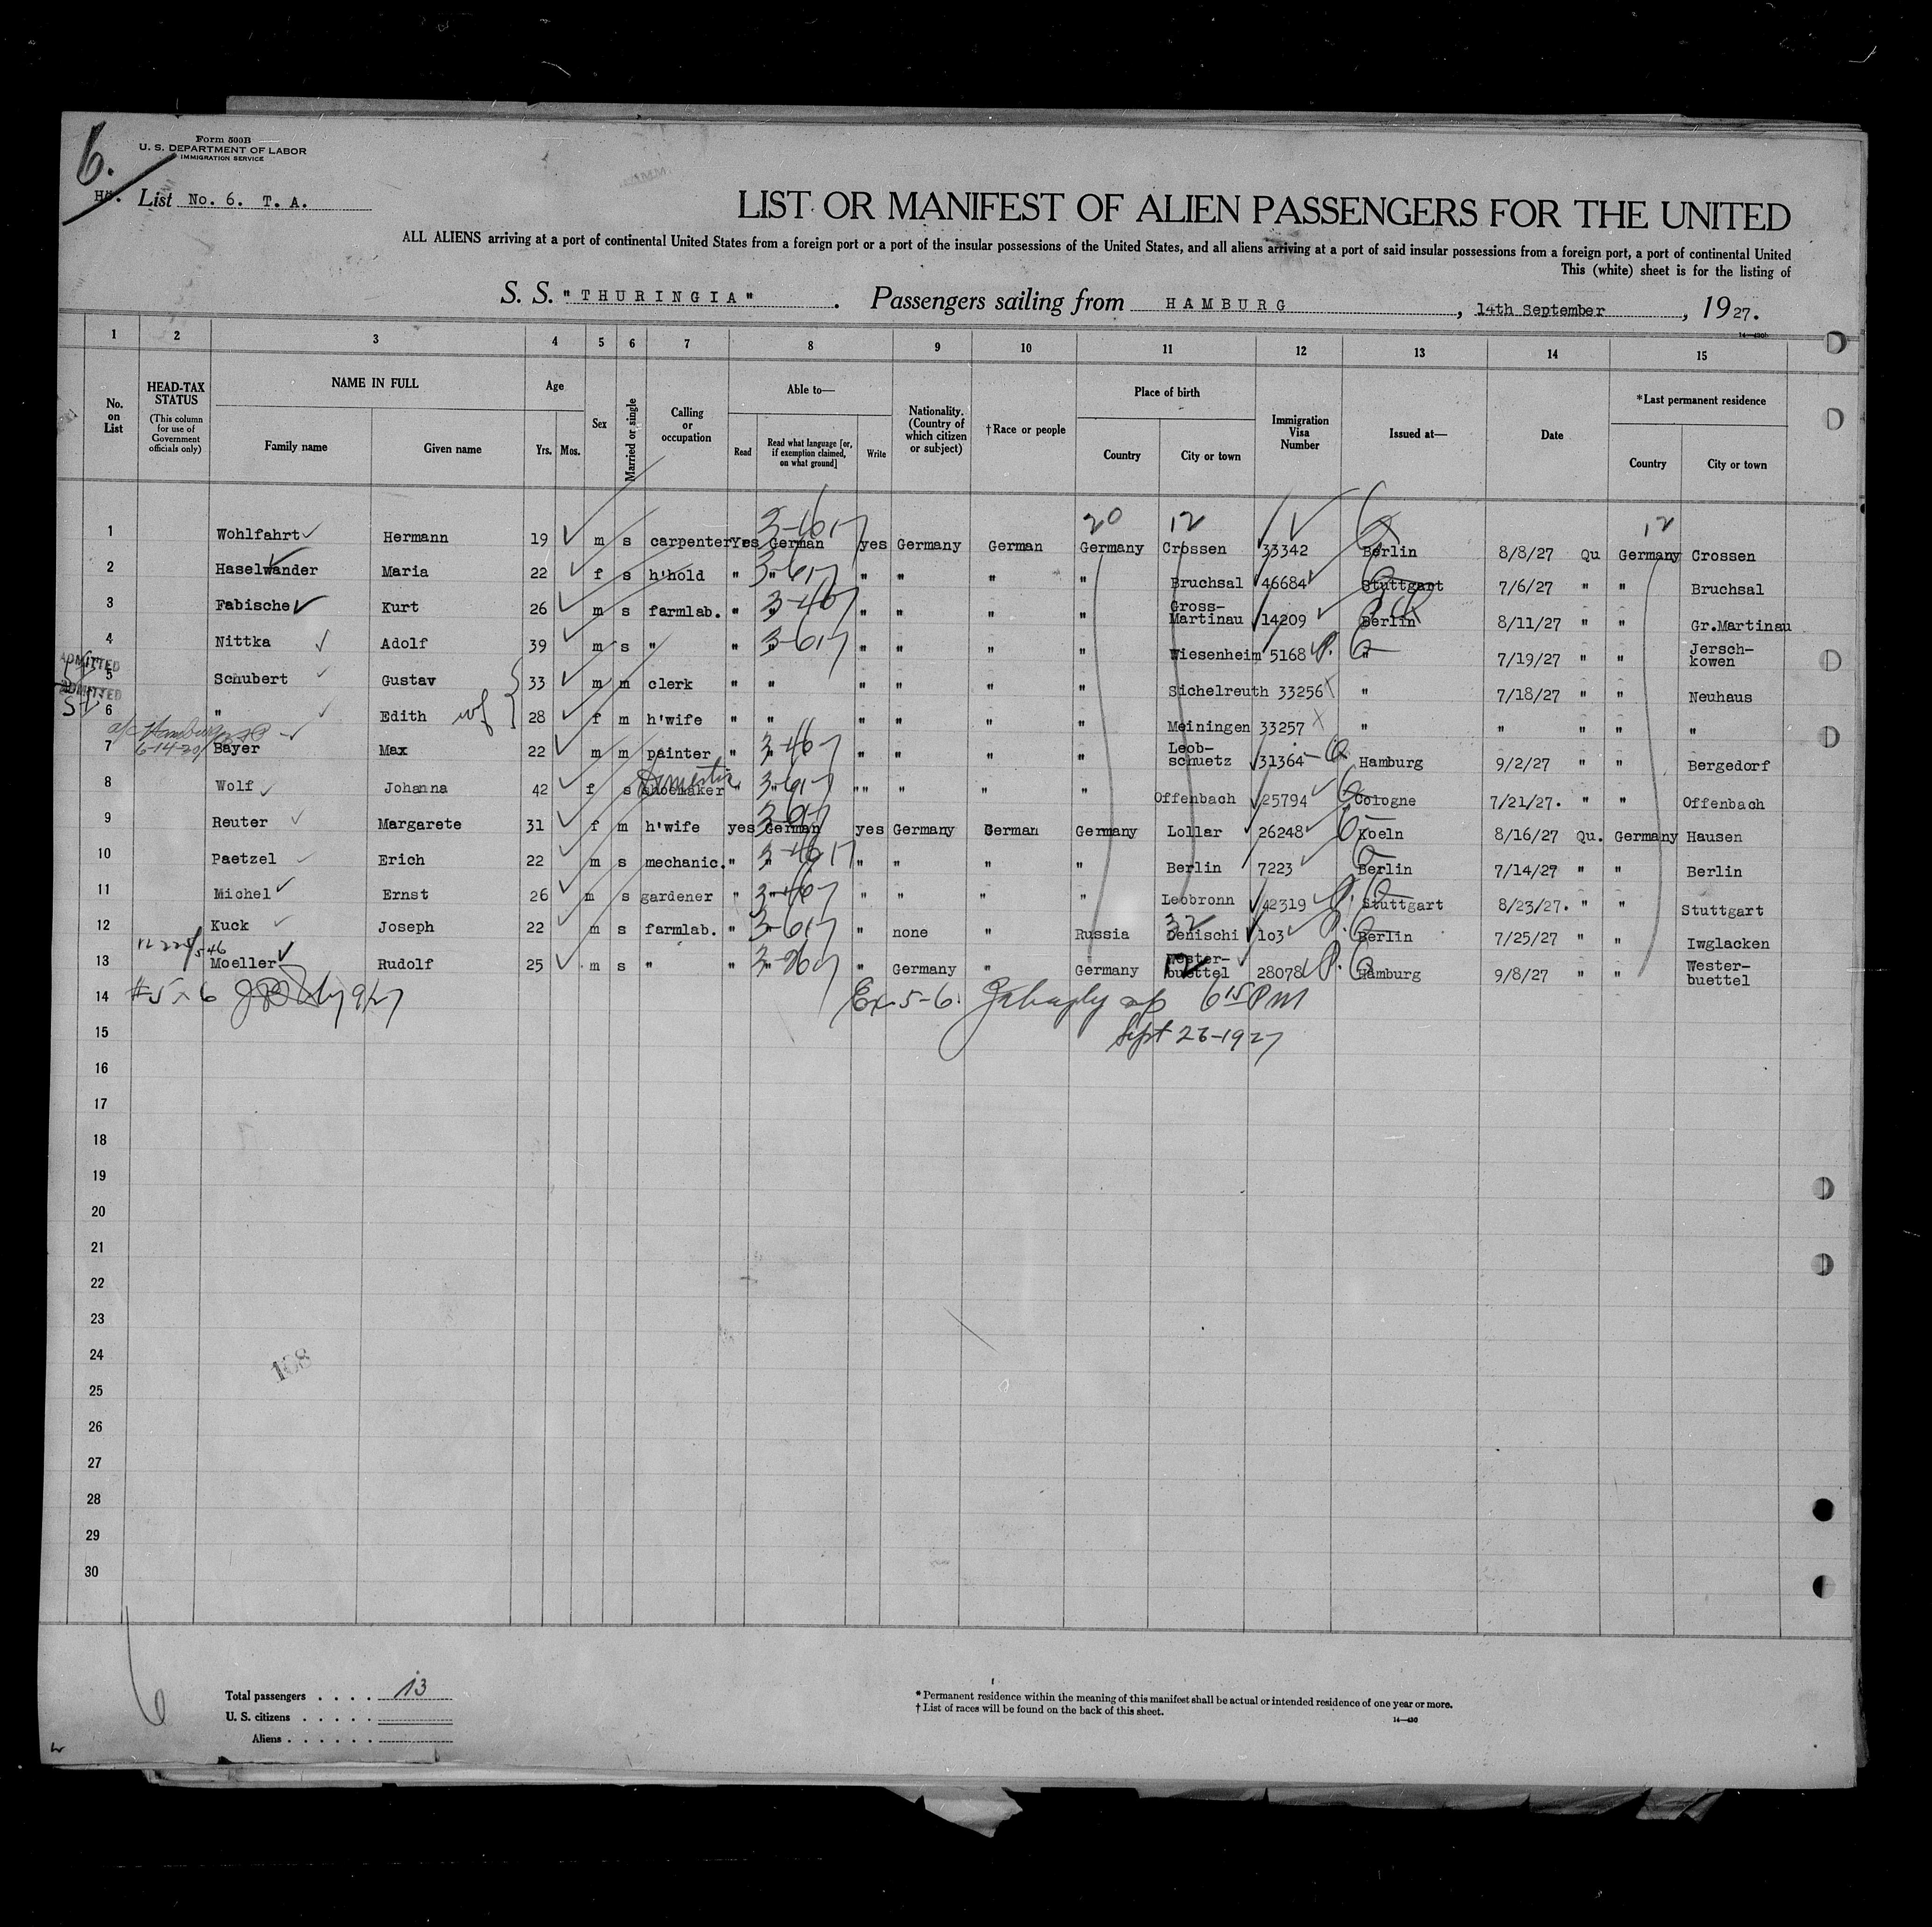 6.
Form 500B
U. S. DEPARTMENT OF LABOR
IMMIGRATION SERVICE
List No. 6. T. A.
LIST OR MANIFEST OF ALIEN PASSENGERS FOR THE UNITED
ALL ALIENS arriving at a port of continental United States from a foreign port or a port of the insular possessions of the United States, and all aliens arriving at a port of said insular possessions from a foreign port, a port of continental United
This (white) sheet is for the listing of
S. S. "THURINGIA". Passengers sailing from HAMBURG, 14th September, 1927.
1 2 3 4 5 6 7 8 9 10 11 12 13 14 15
No. on List
HEAD-TAX STATUS (This column for use of Government officials only)
NAME IN FULL Family name Given name
Age Yrs. Mos.
Sex
Married or single
Calling or occupation
Able to— Read Read what language [or, if exemption claimed, on what ground] Write
Nationality. (Country of which citizen or subject)
†Race or people
Place of birth Country City or town
Immigration Visa Number
Issued at—
Date
*Last permanent residence Country City or town
20 12 12
1 Wohlfahrt Hermann 19 m s carpenter Yes German yes Germany German Germany Crossen 33342 Berlin 8/8/27 Qu Germany Crossen
2 Haselwander Maria 22 f s h'hold " " " " " " Bruchsal 46684 Stuttgart 7/6/27 " " Bruchsal
3 Fabische Kurt 26 m s farmlab. " " " " " " Gross-Martinau 14209 Berlin 8/11/27 " " Gr.Martinau
4 Nittka Adolf 39 m s " " " " " " " Wiesenheim 5168 P. " 7/19/27 " " Jersch-kowen
ADMITTED
5 Schubert Gustav 33 m m clerk " " " " " " Sichelreuth 33256 " 7/18/27 " " Neuhaus
ADMITTED
6 " Edith wf 28 f m h'wife " " " " " " Meiningen 33257 " " " " "
6-14-29
7 Bayer Max 22 m m painter " " " " " " Leob-schuetz 31364 Hamburg 9/2/27 " " Bergedorf
Domestic
8 Wolf Johanna 42 f s shoemaker " " "" " " " Offenbach 25794 Cologne 7/21/27. " " Offenbach
9 Reuter Margarete 31 f m h'wife yes German yes Germany German Germany Lollar 26248 Koeln 8/16/27 Qu. Germany Hausen
10 Paetzel Erich 22 m s mechanic. " " " " " " Berlin 7223 Berlin 7/14/27 " " Berlin
11 Michel Ernst 26 m s gardener " " " " " " Leobronn 42319 P. Stuttgart 8/23/27. " " Stuttgart
12 Kuck Joseph 22 m s farmlab. " " " none " Russia 32 Denischi 103 P. Berlin 7/25/27 " " Iwglacken
13 Moeller Rudolf 25 m s " " " " Germany " Germany 12 Wester-buettel 28078 P. Hamburg 9/8/27 " " Wester-buettel
14 Ex. 5-6. 6 15 PM
15 Sept 26-1927
16
17
18
19
20
21
22
23
24
108
25
26
27
28
29
30
6
Total passengers . . . . 13
U. S. citizens . . . . .
Aliens . . . . . .
* Permanent residence within the meaning of this manifest shall be actual or intended residence of one year or more.
† List of races will be found on the back of this sheet.
14—430